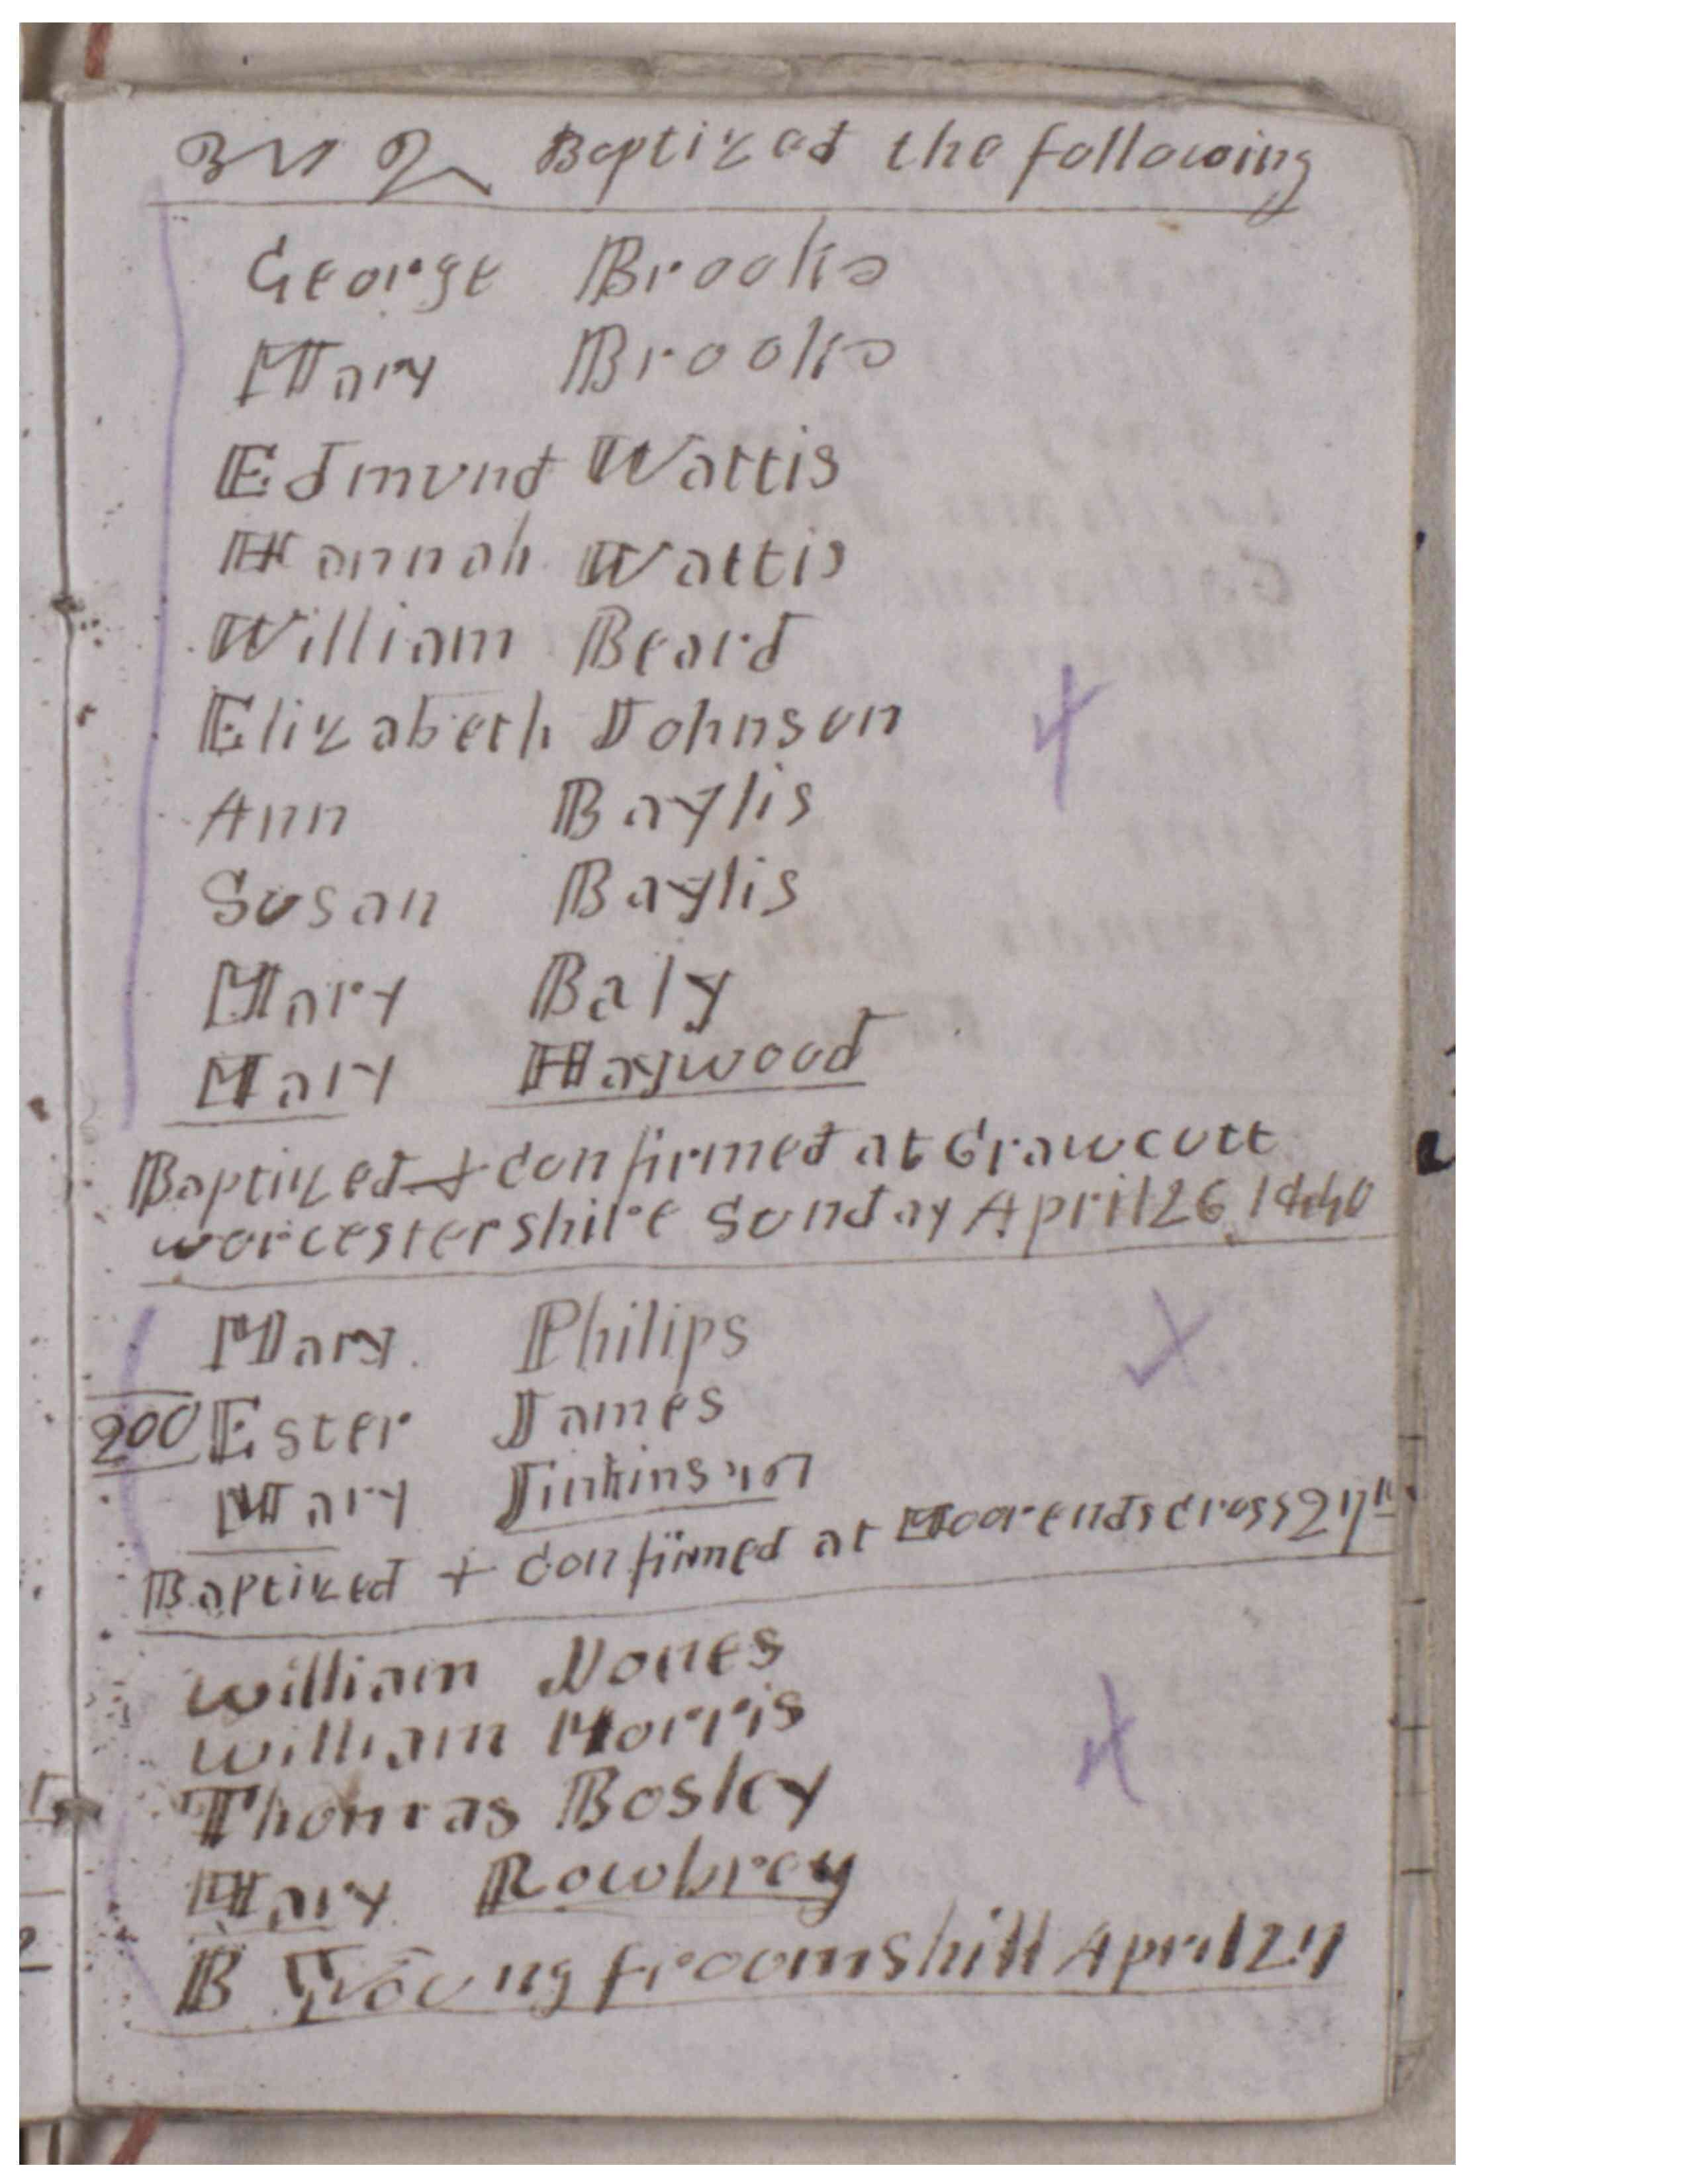 Baptized the following
George Brooks
Mary Brooks
Edmund Wattis
Hannah Wattis
William Beard
Elizabeth Johnson
Ann Baylis
Susan Baylis
Mary Baly
Mary Haywood
Baptized + Confirmed at Crawcutt
worcestershire Sunday April 26 1840
Mary Philips
200 Ester James
Mary Jinkinson
Baptized + Confirmed at Moorends Cross 27th
William Jones
William Morris
Thomas Bosley
Mary Rowbrey
B Young frooms hill April 27